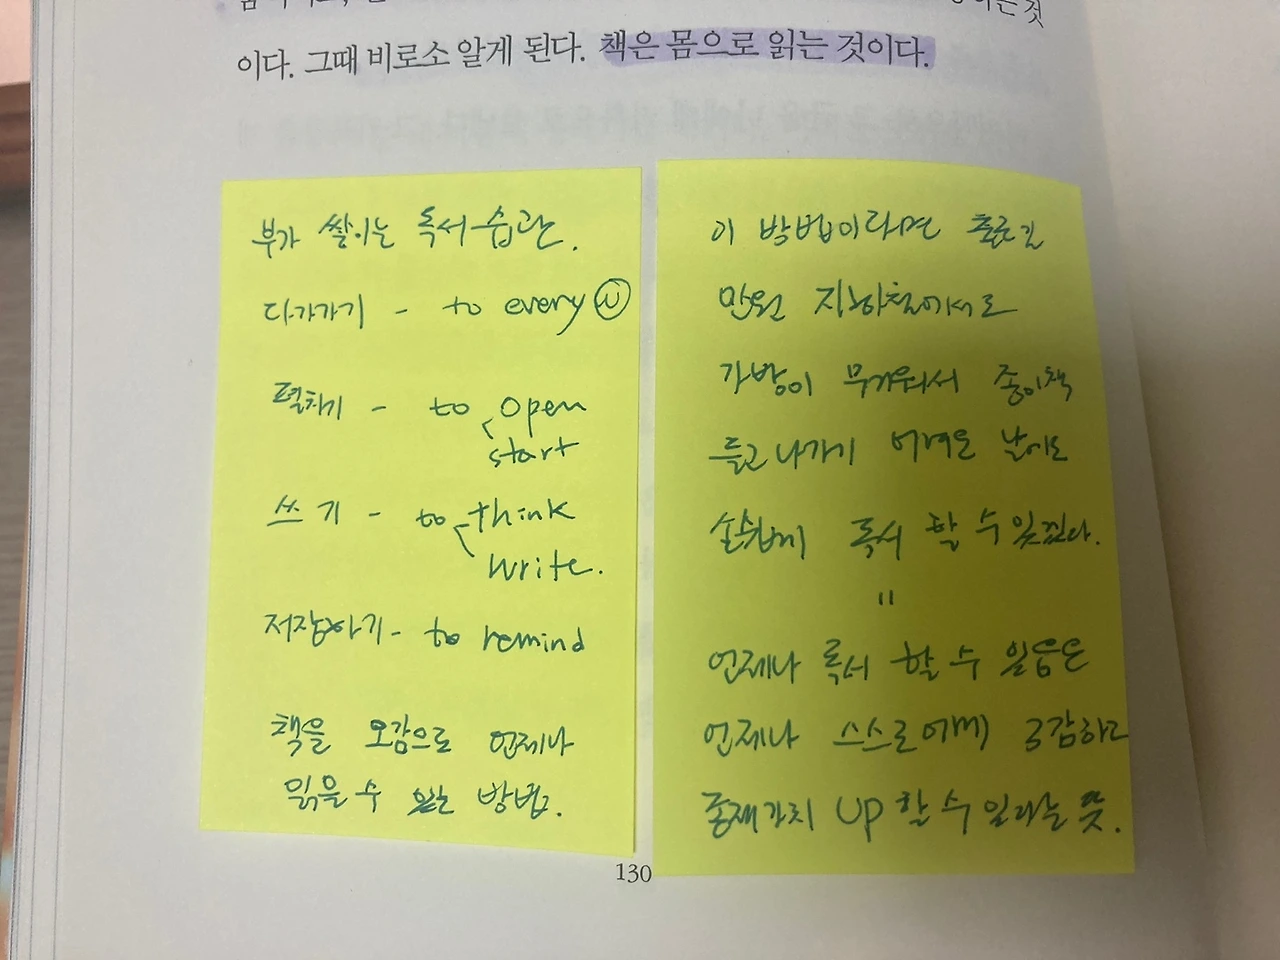 는 것
이다. 그때 비로소 알게 된다. 책은 몸으로 읽는 것이다.
부가 쌓이는 독서습관.
다가가기 - to every
펼치기 - to open
start
쓰기 - to think
write.
저장하기 - to remind
책을 오감으로 언제나
읽을 수 있는 방법.
이 방법이라면 출근길
만원 지하철에서도
가방이 무거워서 종이책
들고 나가기 어려운 날에도
손쉽게 독서 할 수 있겠다.
=
언제나 독서 할 수 있음은
언제나 스스로에게 공감하고
존재가치 up 할 수 있다는 뜻.
130